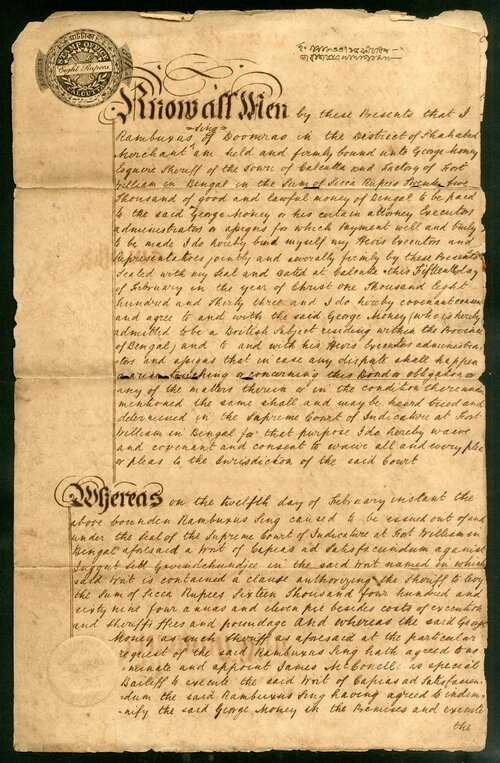 STAMP OFFICE
Eight Rupees
CALCUTTA
Know all Men by these Presents that I
Rambuxus Sing of Doomrao in the District of Shahabad
Merchant am held and firmly bound unto George Money
Esquire Sheriff of the Town of Calcutta and Factory of Fort
William in Bengal in the Sum of Sicca Rupees Twenty five
Thousand of good and lawful money of Bengal to be paid
to the said George Money or his certain attorney Executors
administrators or assigns for which Payment well and truly
to be made I do hereby bind myself my Heirs Executors and
Representatives jointly and severally firmly by these Presents
Sealed with my Seal and dated at Calcutta this Fifteenth day
of February in the year of Christ one Thousand Eight
hundred and Thirty three and I do hereby covenant consent
and agree to and with the said George Money (who is hereby
admitted to be a British Subject residing within the Province
of Bengal) and to and with his Heirs Executors administra
tors and assigns that in case any dispute shall happen
touching or concerning this Bond or obligation or
any of the matters therein or in the condition thereunder
mentioned the same shall and may be heard tried and
determined in the Supreme Court of Judicature at Fort
William in Bengal for that purpose I do hereby waive
and covenant and consent to waive all and every plea
or pleas to the Jurisdiction of the said Court
Whereas on the twelfth day of February instant the
above bounden Rambuxus Sing caused to be issued out of and
under the Seal of the Supreme Court of Judicature at Fort William in
Bengal aforesaid a Writ of Capias ad Satisfaciendum against
Juggut Sett Govindchundjee in the said Writ named in which
said Writ is contained a clause authorizing the Sheriff to levy
the Sum of Sicca Rupees Sixteen Thousand four hundred and
sixty nine four annas and eleven pie besides costs of execution
and Sheriffs fees and poundage And whereas the said George
Money as such Sheriff as aforesaid at the particular
request of the said Rambuxus Sing hath agreed to no
minate and appoint James McConell as special
Bailiff to execute the said Writ of Capias ad Satisfacien
dum the said Rambuxus Sing having agreed to indem
nify the said George Money in the Premises and execute
the